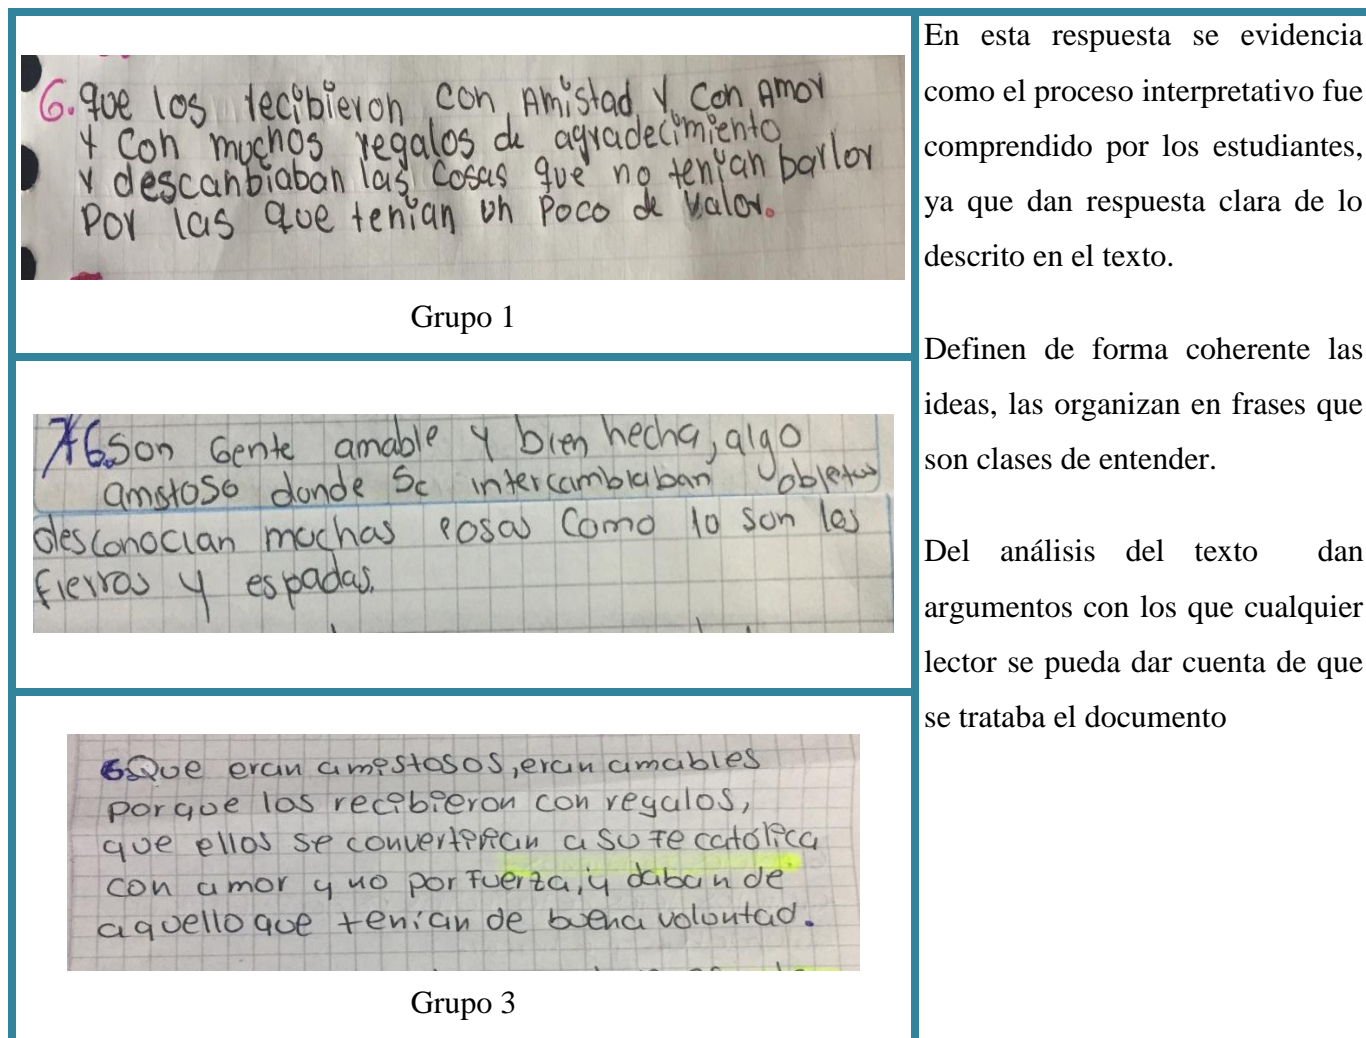 6. que los recibieron con Amistad y con Amor
y con muchos regalos de agradecimiento
y descanbiaban las cosas que no tenían barlor
por las que tenían un poco de valor.
Grupo 1
6. Son Gente amable y bien hecha, algo
amstoso donde Se intercambiaban objetos
desconocian muchas cosas como lo son los
fierros y espadas.
6. Que eran amistosos, eran amables
porque los recibieron con regalos,
que ellos se convertirían a su fe católica
con amor y no por fuerza, y daban de
aquello que tenían de buena voluntad.
Grupo 3
En esta respuesta se evidencia
como el proceso interpretativo fue
comprendido por los estudiantes,
ya que dan respuesta clara de lo
descrito en el texto.
Definen de forma coherente las
ideas, las organizan en frases que
son clases de entender.
Del análisis del texto dan
argumentos con los que cualquier
lector se pueda dar cuenta de que
se trataba el documento